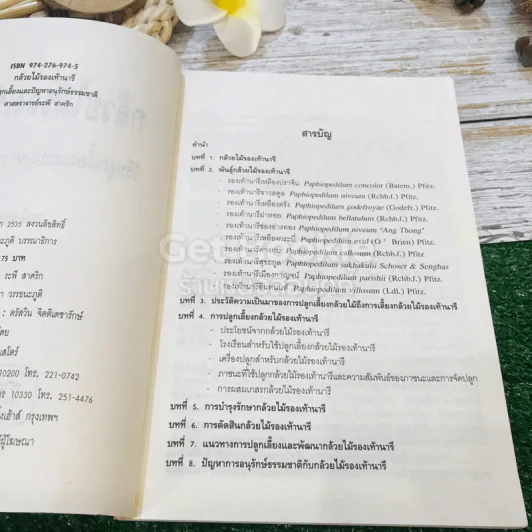 ISBN 974-276-974-5
กล้วยไม้รองเท้านารี
ปลูกเลี้ยงและปัญหาอนุรักษ์ธรรมชาติ
ศาสตราจารย์ระพี สาคริก
2535 สงวนลิขสิทธิ์
บรรณาธิการ
75 บาท
ระพี สาคริก
วรรธนะภูติ
: ตรัสวิน จิตติเดชารักษ์
10200 โทร. 221-0742
10330 โทร. 251-4476
เฮ้าส์ กรุงเทพฯ
ผู้โฆษณา
สารบัญ
คำนำ
บทที่ 1. กล้วยไม้รองเท้านารี
บทที่ 2. พันธุ์กล้วยไม้รองเท้านารี
- รองเท้านารีเหลืองปราจีน Paphiopedilum concolor (Batem.) Pfitz.
- รองเท้านารีขาวสตูล Paphiopedilum niveum (Rchb.f.) Pfitz.
- รองเท้านารีเหลืองตรัง Paphiopedilum godefroyae (Godefr.) Pfitz.
- รองเท้านารีฝาหอย Paphiopedilum bellatulum (Rchb.f.) Pfitz.
- รองเท้านารีช่องอ่างทอง Paphiopedilum niveum "Ang Thong"
- รองเท้านารีเหลืองกระบี่ Paphiopedilum exul (O' Brien) Pfitz.
- รองเท้านารี (Rchb.f.) Pfitz.
- รองเท้านารีสุขะกูล Paphiopedilum sukhakulii Schoser & Senghas
- รองเท้านารีเมืองกาญจน์ Paphiopedilum parishii (Rchb.f.) Pfitz.
- รองเท้านารีอินทนนท์ Paphiopedilum villosum (Ldl.) Pfitz.
บทที่ 3. ประวัติความเป็นมาของการปลูกเลี้ยงกล้วยไม้ถึงการเลี้ยงกล้วยไม้รองเท้านารี
บทที่ 4. การปลูกเลี้ยงกล้วยไม้รองเท้านารี
- ประโยชน์จากกล้วยไม้รองเท้านารี
- โรงเรือนสำหรับใช้ปลูกเลี้ยงกล้วยไม้รองเท้านารี
- เครื่องปลูกสำหรับกล้วยไม้รองเท้านารี
- ภาชนะที่ใช้ปลูกกล้วยไม้รองเท้านารีและความสัมพันธ์ของภาชนะและการจัดปลูก
- การผสมเกสรกล้วยไม้รองเท้านารี
บทที่ 5. การบำรุงรักษากล้วยไม้รองเท้านารี
บทที่ 6. การตัดสินกล้วยไม้รองเท้านารี
บทที่ 7. แนวทางการปลูกเลี้ยงและพัฒนากล้วยไม้รองเท้านารี
บทที่ 8. ปัญหาการอนุรักษ์ธรรมชาติกับกล้วยไม้รองเท้านารี